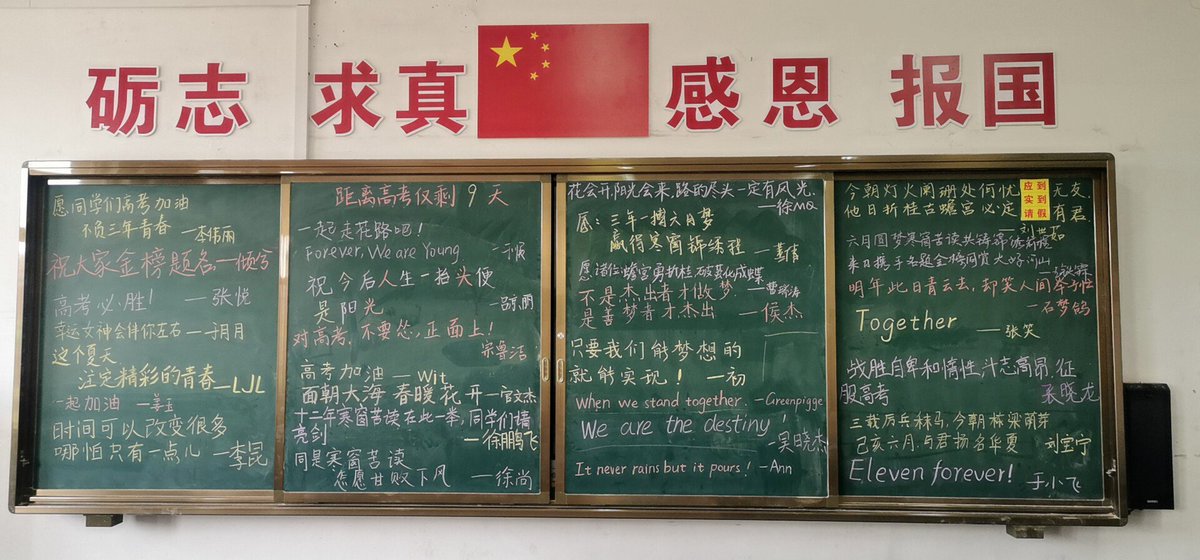 砺志 求真 感恩 报国
愿同学们高考加油
不负三年青春 —李伟雨
祝大家金榜题名—
高考必胜! —张悦
幸运女神会伴你左右—于月月
这个夏天
注定精彩的青春—LJL
一起加油 —姜玉
时间可以改变很多
哪怕只有一点儿 —李昆
距离高考仅剩 9 天
一起走花路吧!
Forever, We are Young
祝今后人生一抬头便
是阳光
对高考,不要怂,正面上!
宗鲁洁
高考加油 — Wit
面朝大海 春暖花开 —官文杰
十二年寒窗苦读在此一举,同学们请
亮剑 —徐鹏飞
同是寒窗苦读
怎愿甘败下风 —徐尚
花会开,阳光会来,路的尽头一定有风光.
—徐MQ
三年一搏六月梦
赢得寒窗锦绣程
愿诸位蟾宫勇折桂 破茧化成蝶
不是杰出者才做梦
是善梦者才杰出 —侯杰
只要我们能梦想的
就能实现! —初
When we stand together. —Greenpigge
We are the destiny!
吴晓杰
It never rains but it pours! —Ann
应到
实到
请假
今朝灯火阑珊处何忧 无友
他日折桂古蟾宫必定 有君
刘世茹
六月圆梦寒窗苦读共铸
来日携手名题金榜同赏大好河山
明年此日青云去,却笑人间举子忙
—石梦鸽
Together —张笑
战胜自卑和惰性,斗志高昂 征
服高考 袁晓龙
三载厉兵秣马,今朝栋梁萌芽
己亥六月,与君扬名华夏 刘宝宁
Eleven forever! 于小飞